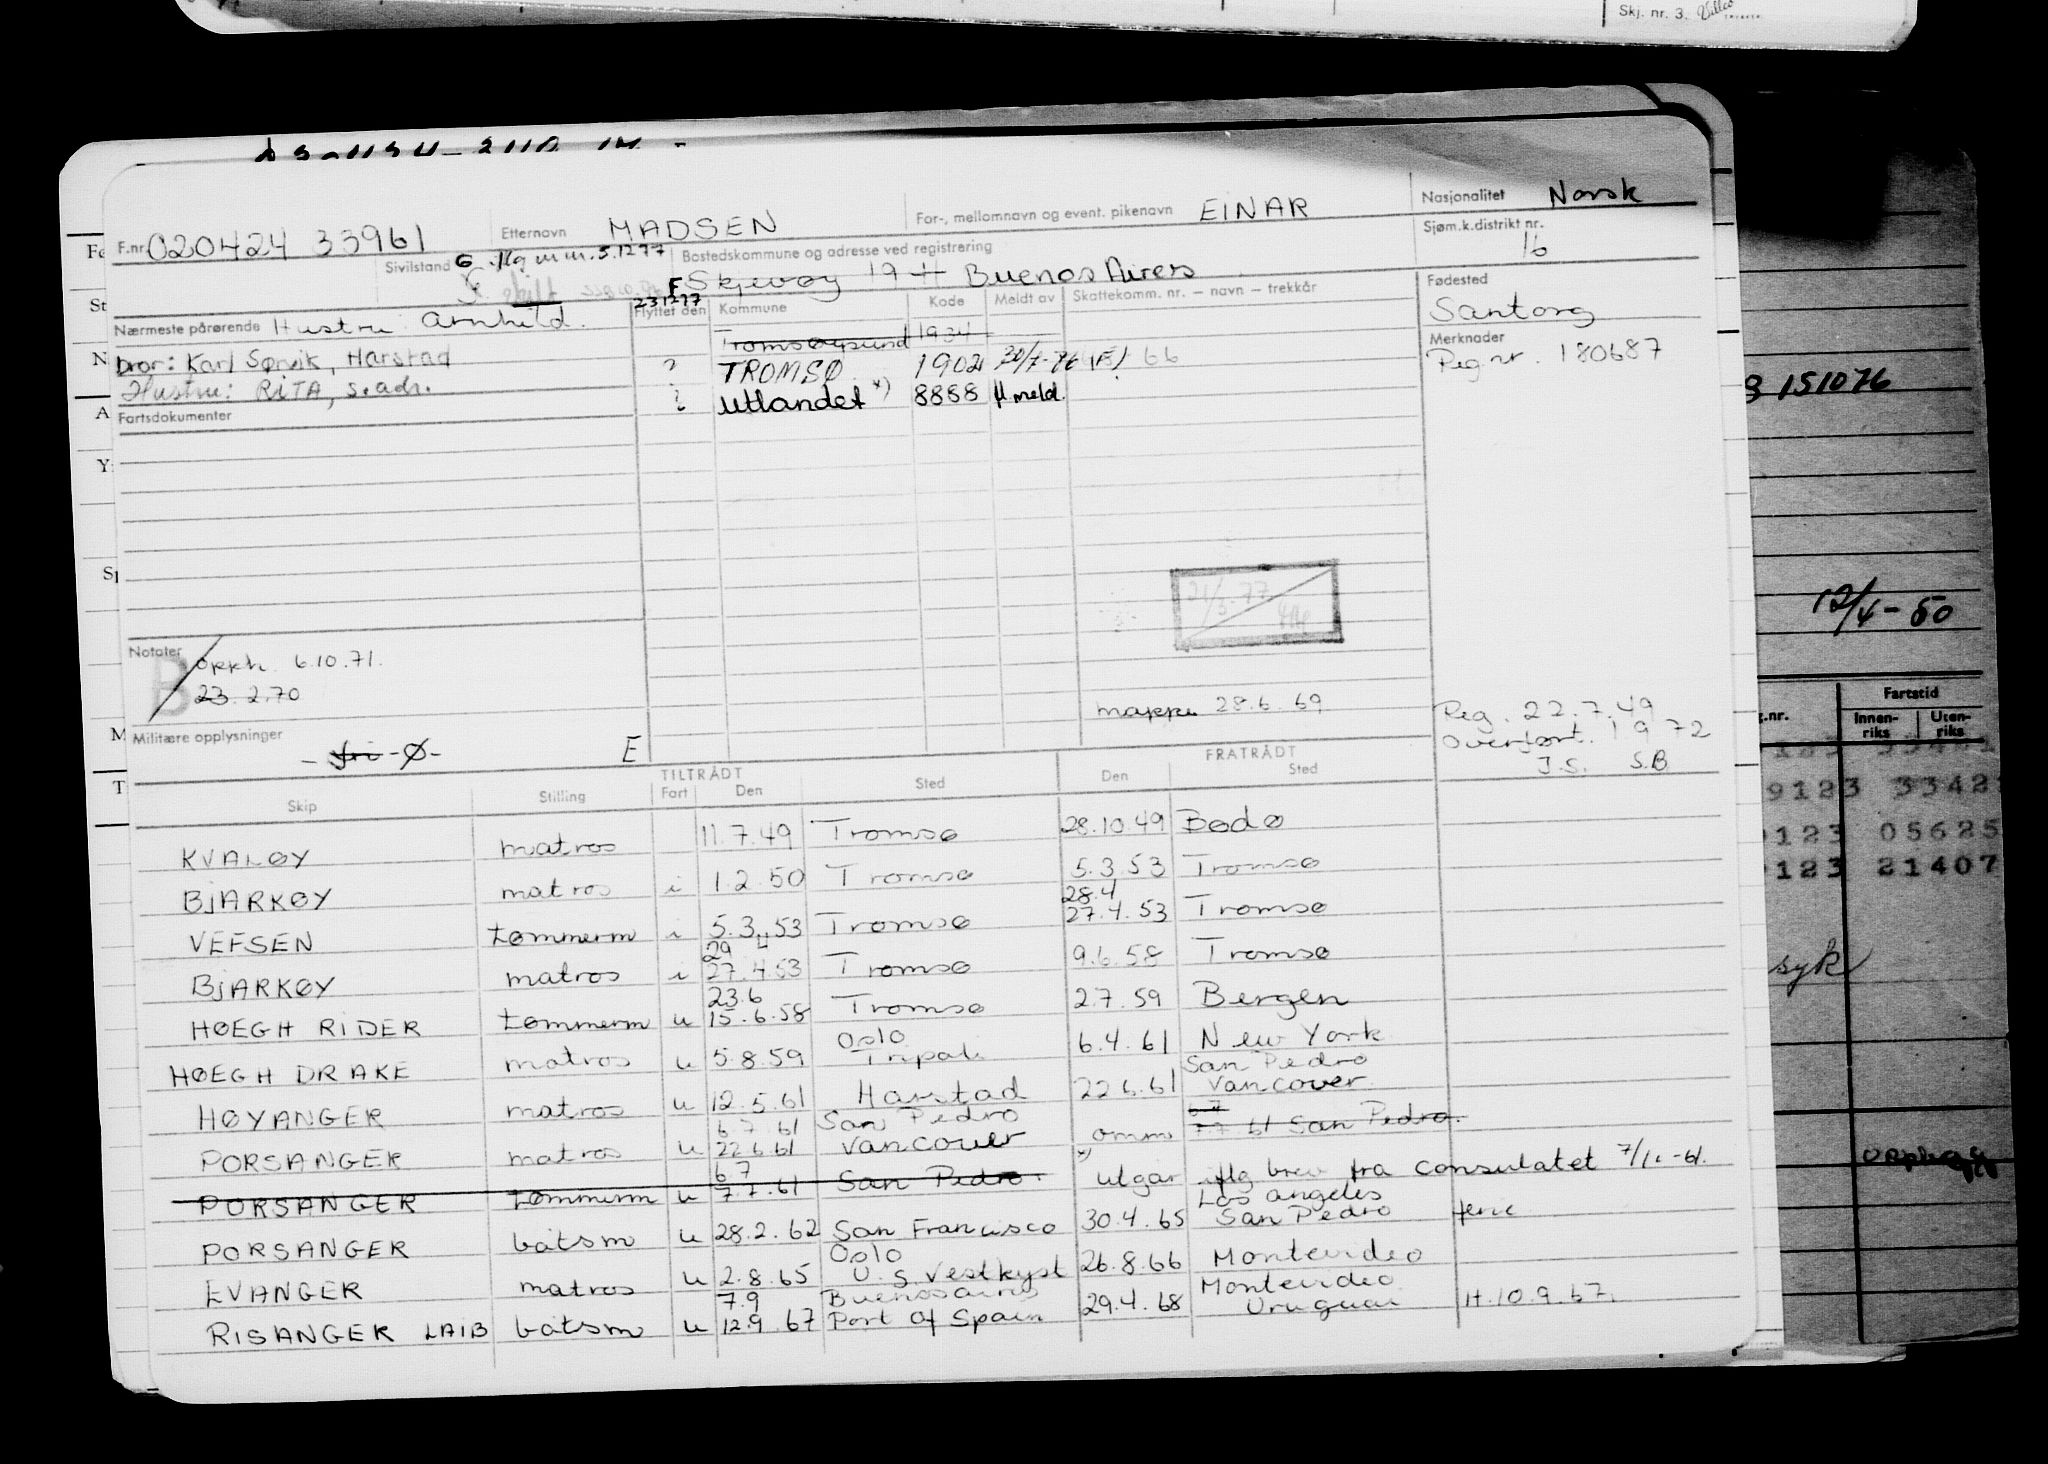 Skj. nr. 3.
F.nr. 020424 33961 Etternavn MADSEN For-, mellomnavn og event. pikenavn EINAR Nasjonalitet Norsk
Sivilstand G Bostedskommune og adresse ved registrering Sjøm.k.distrikt nr. 16
Skjevøy 19 Buenos Aires
Fødested
Santorg
Nærmeste pårørende Hustru: Arnhild.
231277
Flyttet den Kommune Kode Meldt av Skattekomm. nr. – navn – trekkår
Merknader
Tromsøysund 1934
Bror: Karl Sørvik, Harstad
? TROMSØ 1902 30/7-76 (F) 66
Reg.nr. 180687
Hustru: RITA, s.adr.
? Utlandet *) 8888 fl meld.
Fartsdokumenter
3 151076
12/4-50
21/3-77
Notater
B
opph. 6.10.71.
23.2.70
mappe 28.6.69
Reg. 22.7.49
Overført. 1972
J.S. S.B
Militære opplysninger
- fri -Ø- E
TILTRÅDT FRATRÅDT
Skip Stilling Fart Den Sted Den Sted
KVALØY matros 11.7.49 Tromsø 28.10.49 Bodø
BJARKØY matros i 1.2.50 Tromsø 5.3.53 Tromsø
28.4
VEFSEN tømmerm i 5.3.53 Tromsø 27.4.53 Tromsø
29 4
BJARKØY matros i 27.4.53 Tromsø 9.6.58 Tromsø
23.6
HØEGH RIDER tømmerm u 15.6.58 Tromsø 2.7.59 Bergen
Oslo
HØEGH DRAKE matros u 5.8.59 Tripoli 6.4.61 New York
San Pedro
HØYANGER matros u 12.5.61 Harstad 22.6.61 Vancover
6.7 61 San Pedro 6.7
PORSANGER matros u 22.6.61 Vancover omm 7.7 61 San Pedro.
6.7
PORSANGER tømmerm u 7.7.61 San Pedro. *) utgår iflg brev fra consulatet 7/11-61.
Los angeles
PORSANGER båtsm u 28.2.62 San Francisco 30.4.65 San Pedro ferie
Oslo
EVANGER matros u 2.8.65 U.S. Vestkyst 26.8.66 Montevideo
7.9 Buenos aires Montevideo
RISANGER LAIB båtsm u 12.9.67 Port of Spain 29.4.68 Uruguai H.10.9.67.
Fartstid
Innen-riks Uten-riks
9123 3342
123 05625
123 21407
syk